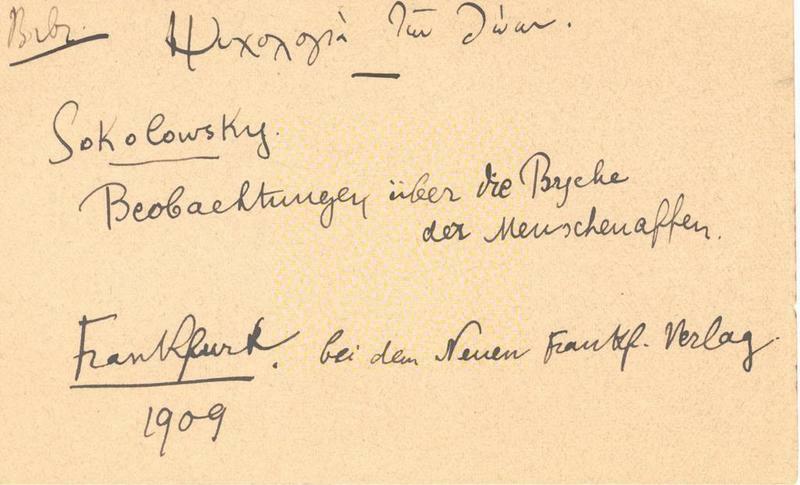 Ψυχολογία τῶν ζώων.
Sokolowsky.
Beobachtungen über die Psyche
der Menschenaffen.
Frankfurt. bei dem Neuen Frankf. Verlag.
1909